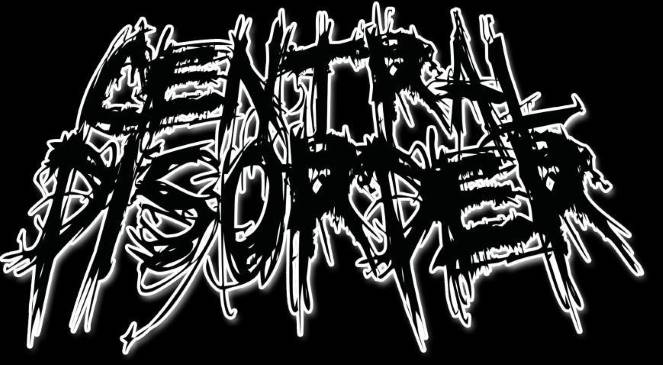 CENTRAL
DISORDER